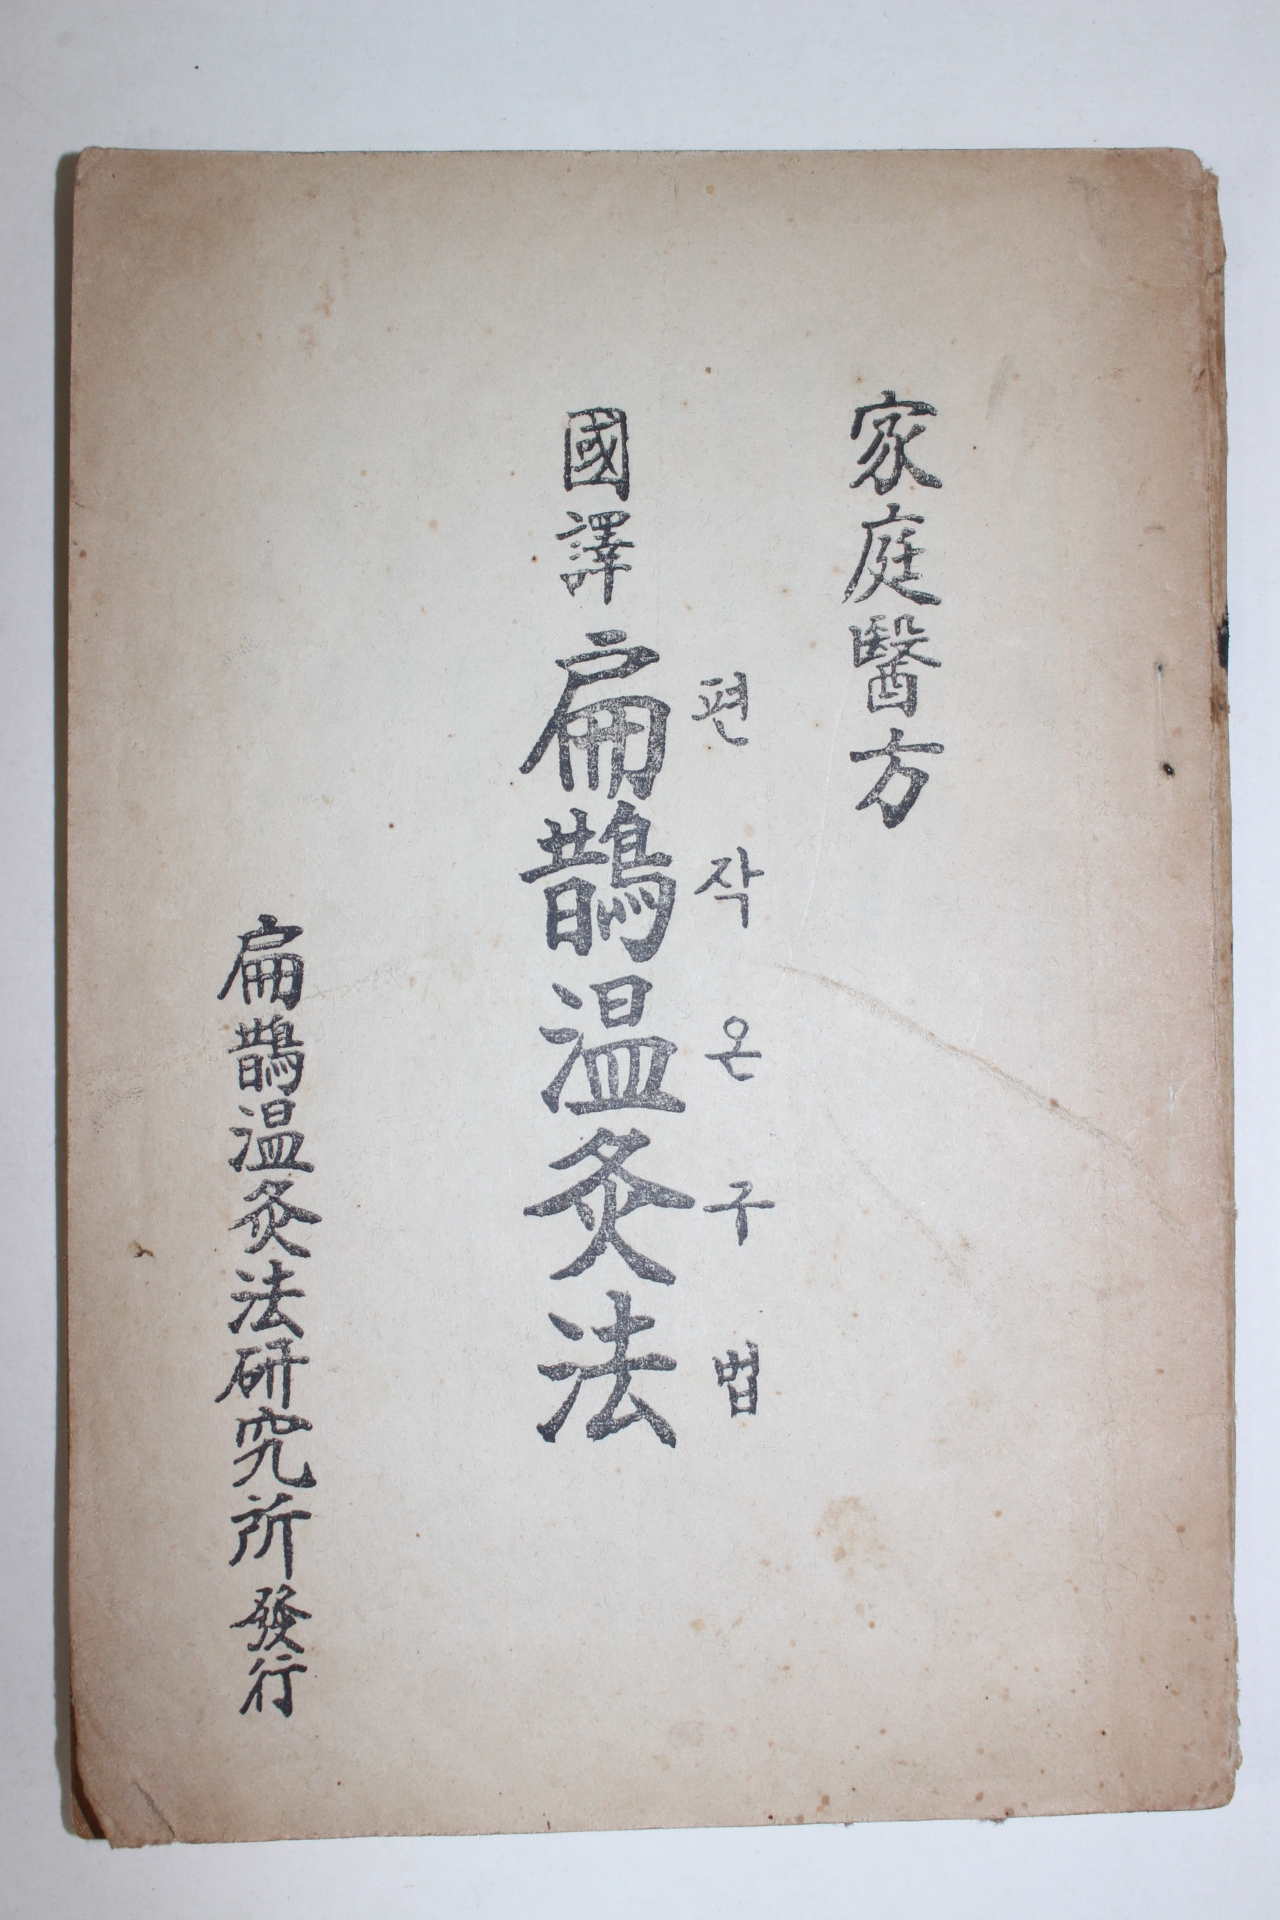 家庭醫方
편작온구법
國譯 扁鵲温灸法
扁鵲温灸法研究所 發行